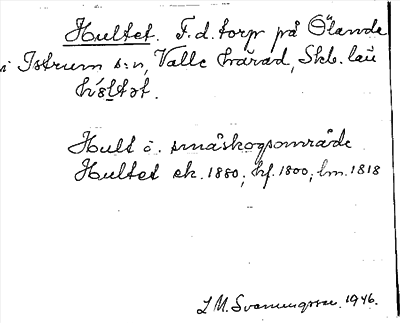 Hultet. F.d. torp på Ölanda
i Istrum s:n, Valle härad, Skb. län
Hult i småskogsområde
Hultet ek. 1880; hf. 1800; lm. 1818
1946.